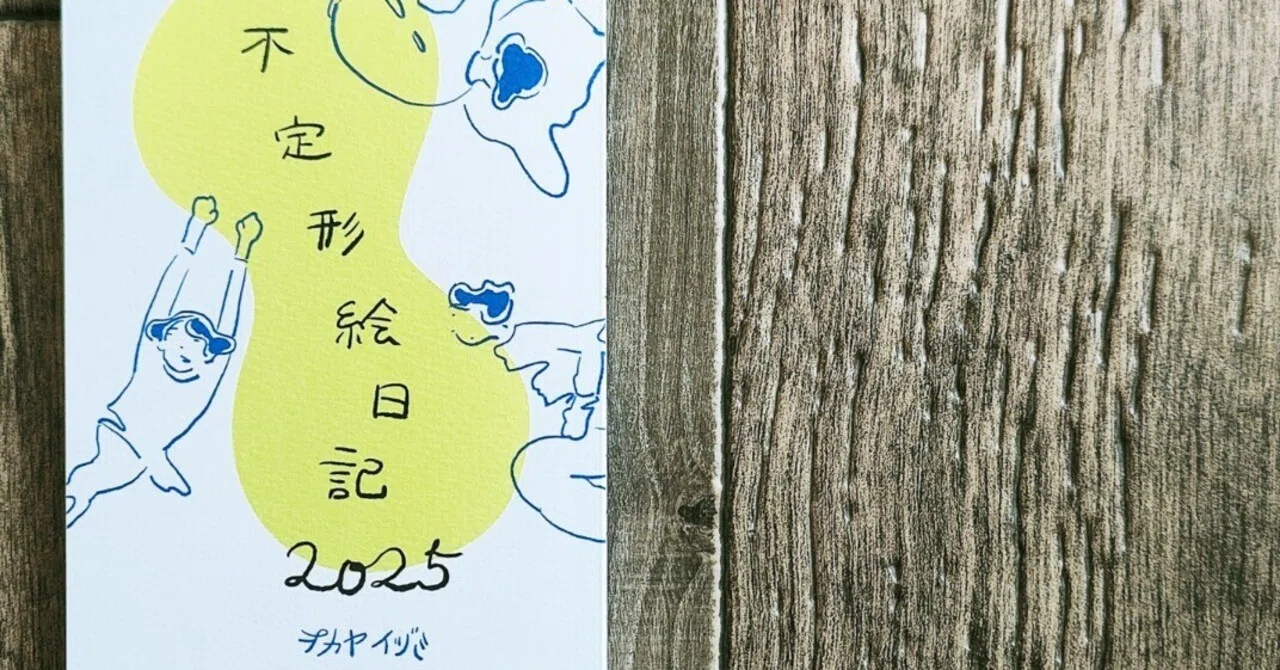 不定形絵日記
2025
オカヤイヅミ